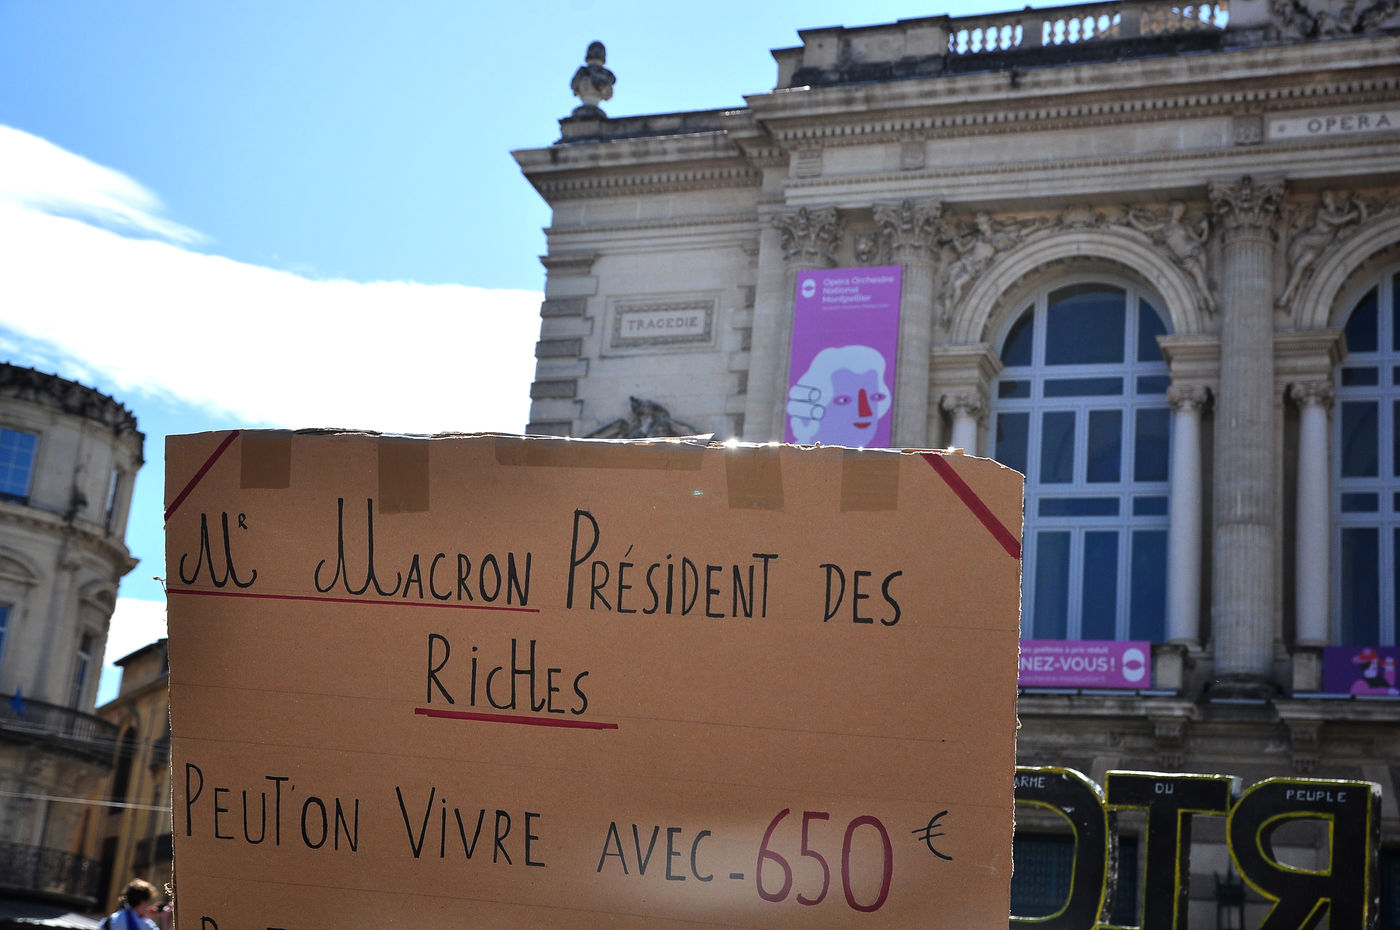 OPERA
Opéra Orchestre
National
Montpellier
TRAGEDIE
Mʳ MACRON PRÉSIDENT DES
RICHES
PEUT'ON VIVRE AVEC - 650 €
préférés à prix réduit
NEZ-VOUS !
ARME DU PEUPLE